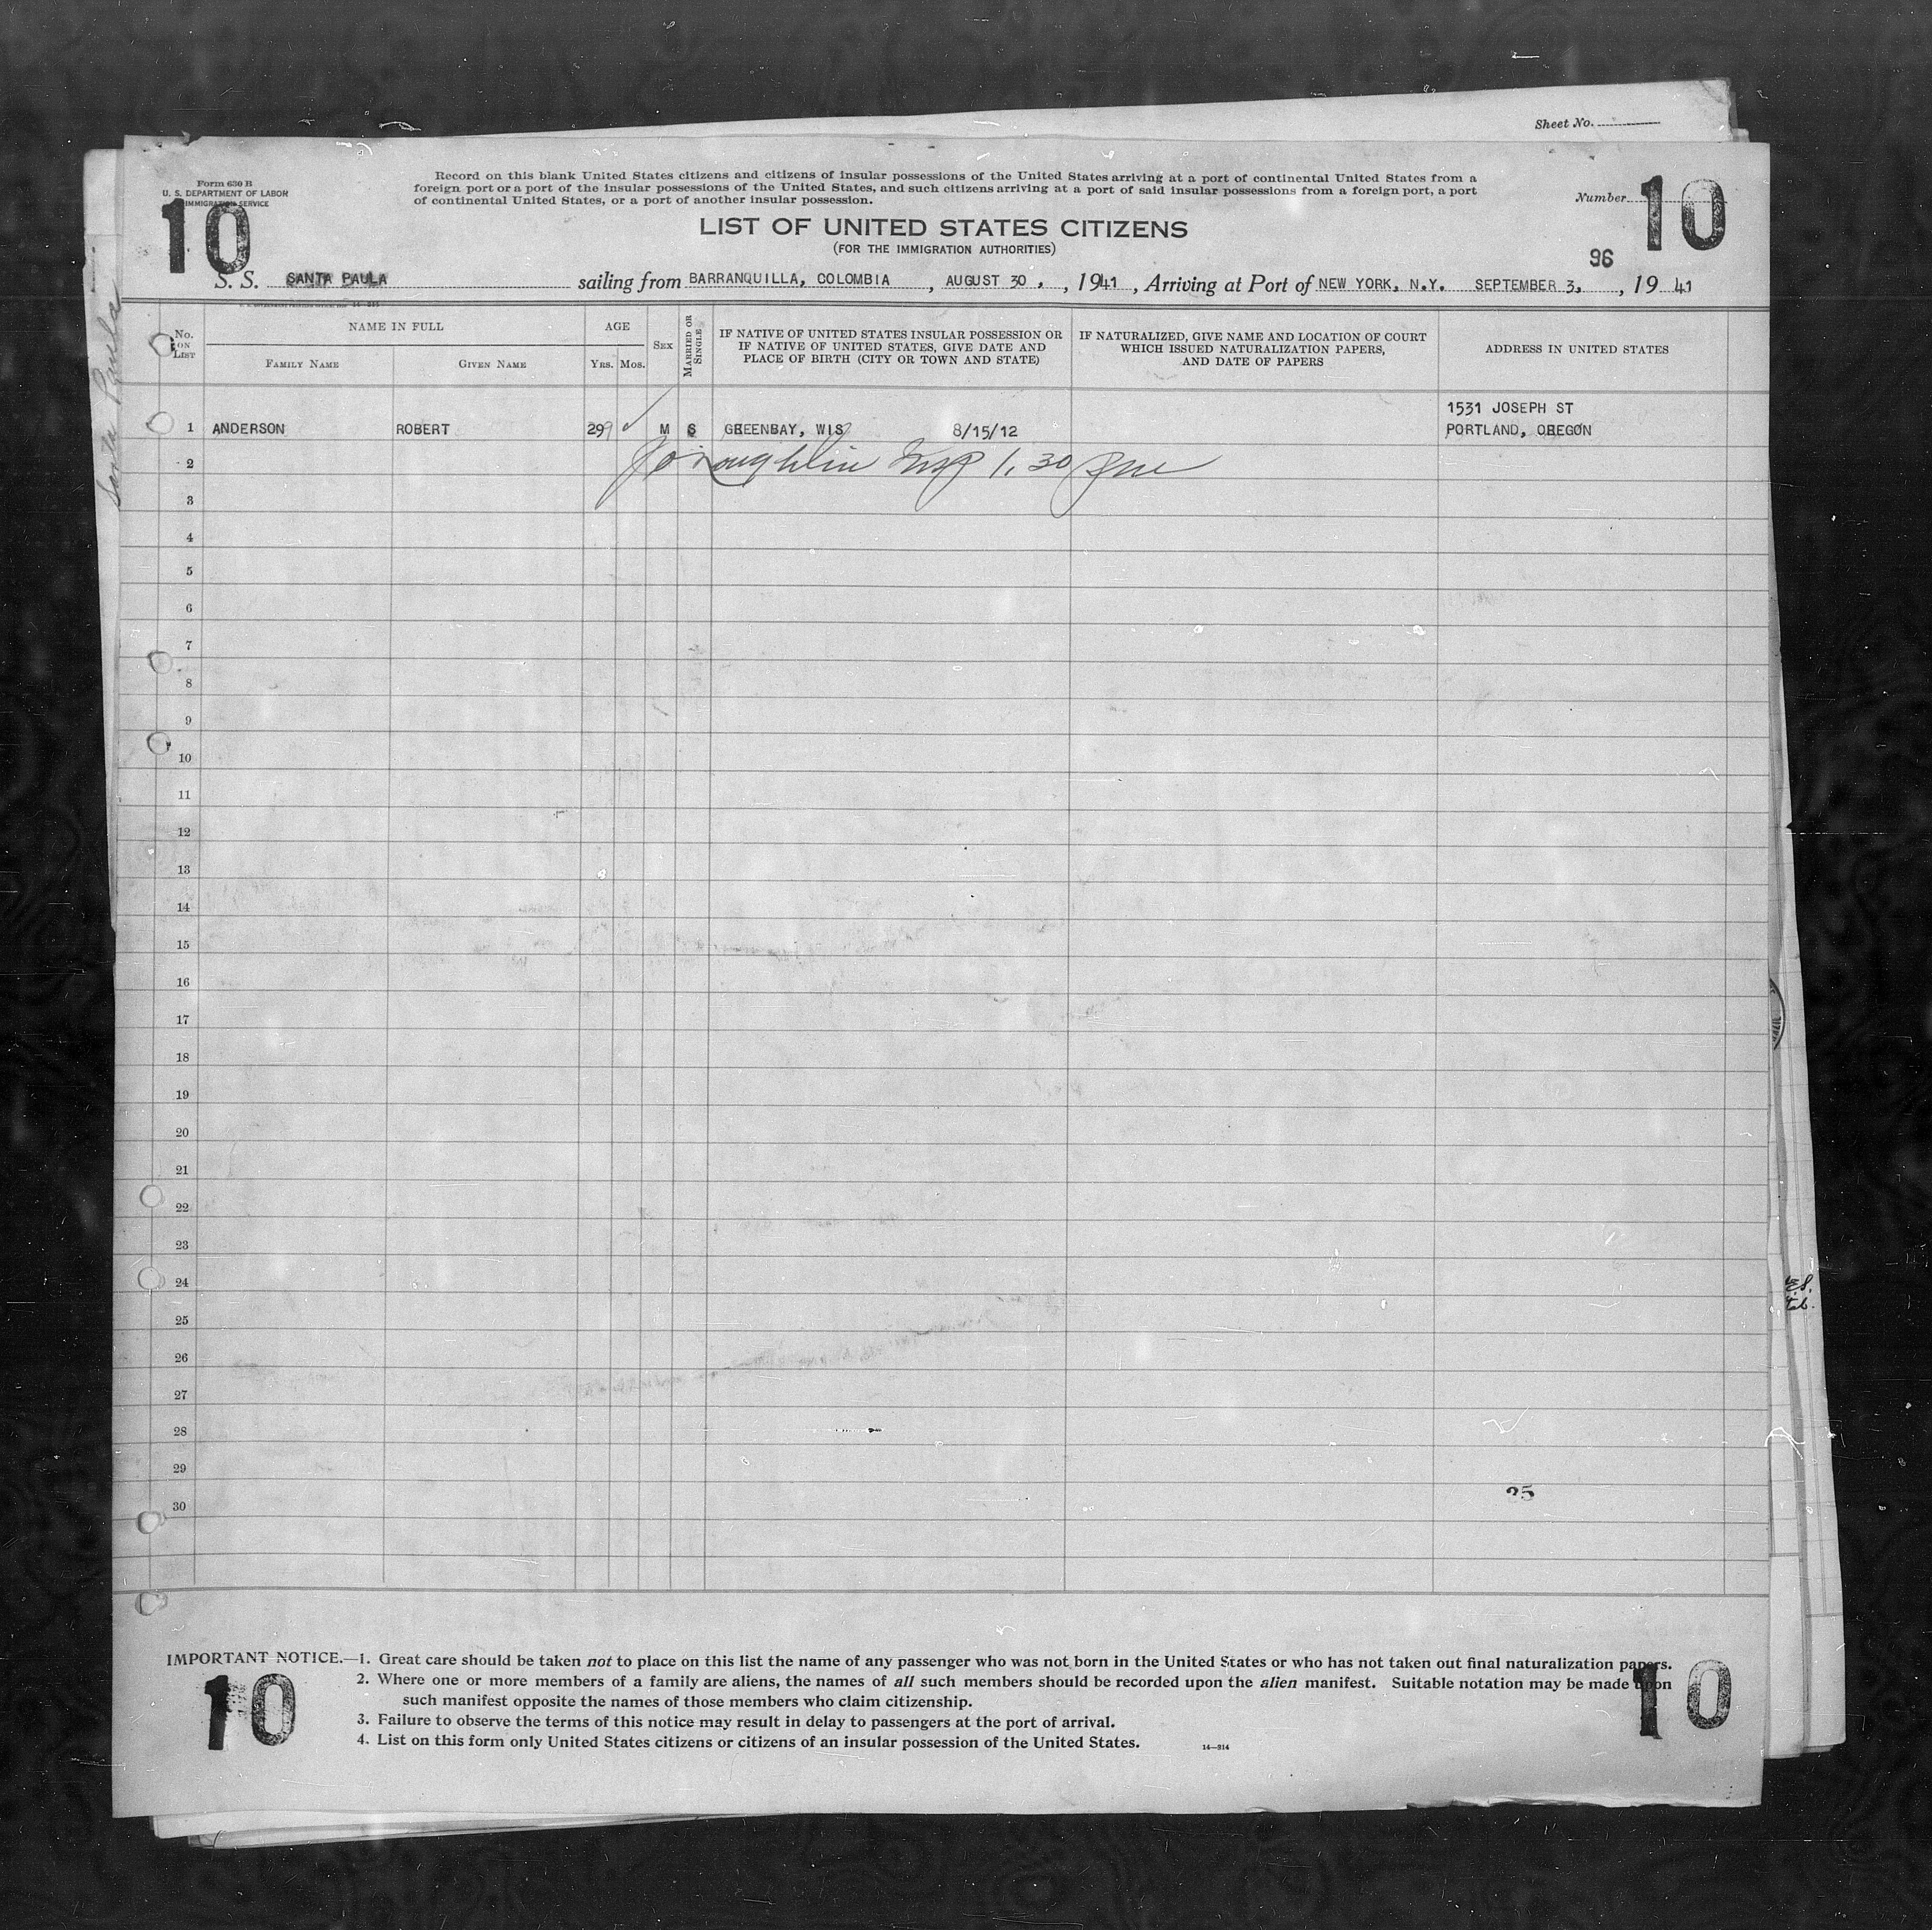 Sheet No.
Form 630 B
U. S. DEPARTMENT OF LABOR
IMMIGRATION SERVICE
Record on this blank United States citizens and citizens of insular possessions of the United States arriving at a port of continental United States from a
foreign port or a port of the insular possessions of the United States, and such citizens arriving at a port of said insular possessions from a foreign port, a port
of continental United States, or a port of another insular possession.
Number
10
10
LIST OF UNITED STATES CITIZENS
(FOR THE IMMIGRATION AUTHORITIES)
96
S. S. SANTA PAULA sailing from BARRANQUILLA, COLOMBIA, AUGUST 30, , 1941, Arriving at Port of NEW YORK, N.Y. SEPTEMBER 3, , 19 41
Santa Paula
No. ON LIST
NAME IN FULL
FAMILY NAME
GIVEN NAME
AGE
YRS. MOS.
SEX
MARRIED OR SINGLE
IF NATIVE OF UNITED STATES INSULAR POSSESSION OR
IF NATIVE OF UNITED STATES, GIVE DATE AND
PLACE OF BIRTH (CITY OR TOWN AND STATE)
IF NATURALIZED, GIVE NAME AND LOCATION OF COURT
WHICH ISSUED NATURALIZATION PAPERS,
AND DATE OF PAPERS
ADDRESS IN UNITED STATES
1531 JOSEPH ST
1 ANDERSON ROBERT 29 M S GREENBAY, WIS 8/15/12 PORTLAND, OREGON
2
3
4
5
6
7
8
9
10
11
12
13
14
15
16
17
18
19
20
21
22
23
24
25
26
27
28
29
30
IMPORTANT NOTICE.—1. Great care should be taken not to place on this list the name of any passenger who was not born in the United States or who has not taken out final naturalization papers.
2. Where one or more members of a family are aliens, the names of all such members should be recorded upon the alien manifest. Suitable notation may be made upon
such manifest opposite the names of those members who claim citizenship.
3. Failure to observe the terms of this notice may result in delay to passengers at the port of arrival.
4. List on this form only United States citizens or citizens of an insular possession of the United States.
14—214
10
10